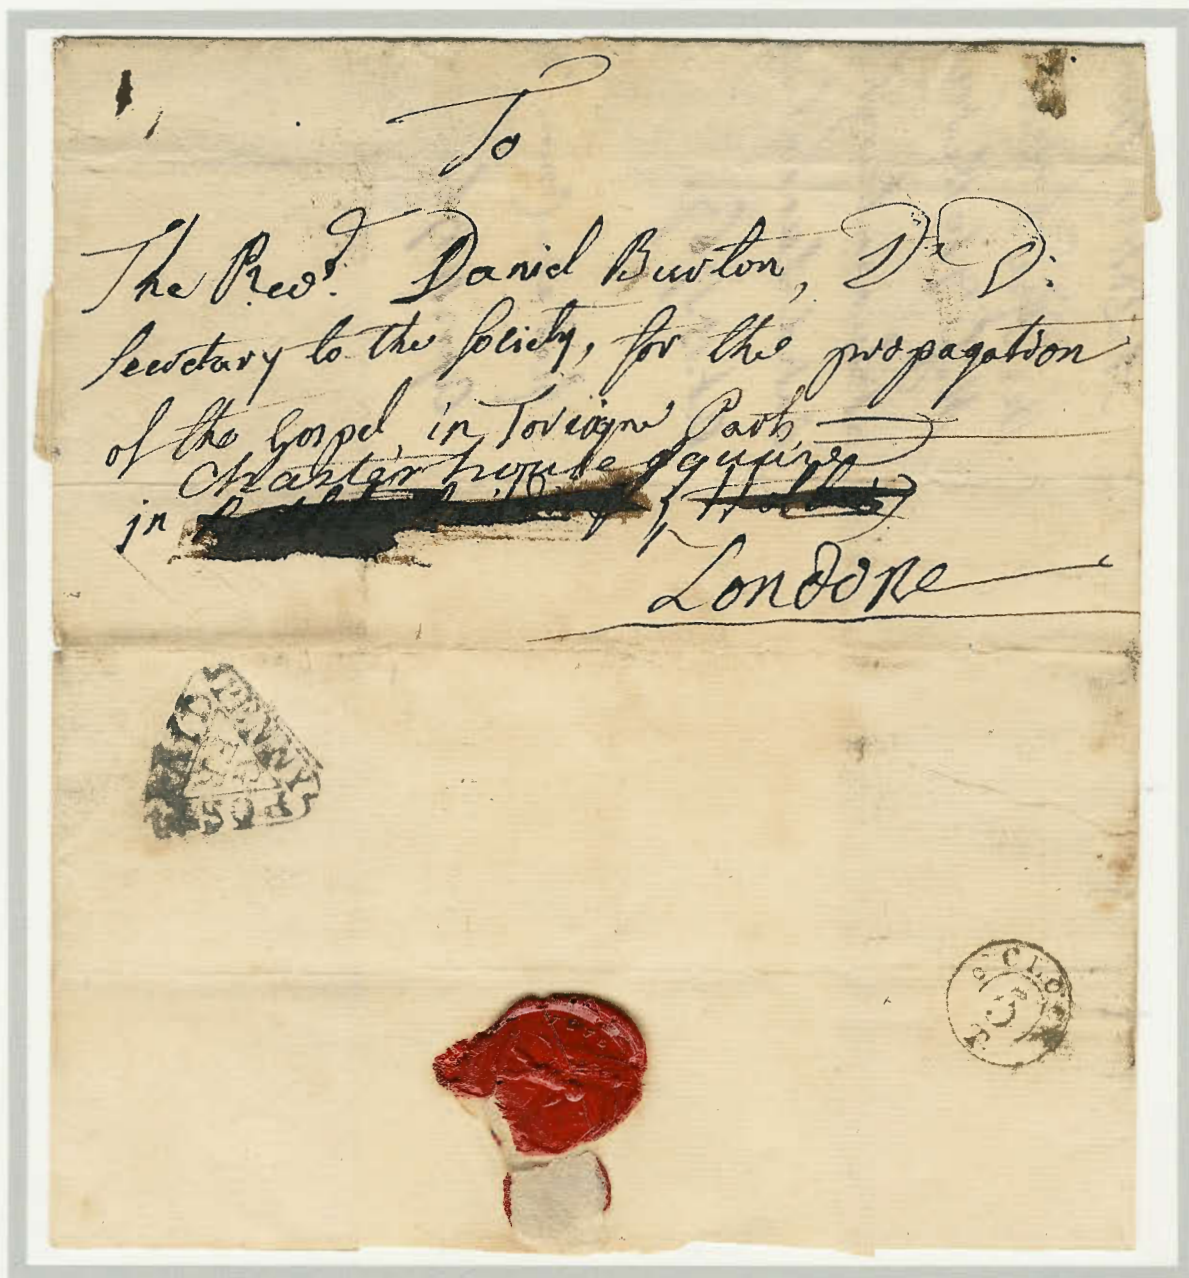 To
The Revd. Daniel Burton, D D:
Secretary to the Society, for the propagation
of the Gospel, in Foreigne Parts,
Charter house Square
in
Londone
PENNY POST PAID
O'CLOCK 5